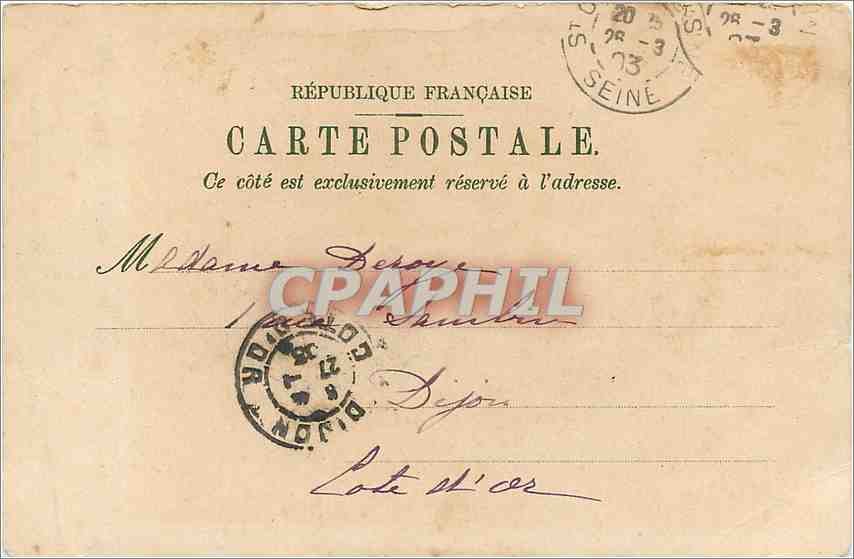 20
26 -3
03
SEINE
26 -3
RÉPUBLIQUE FRANÇAISE
CARTE POSTALE.
Ce côté est exclusivement réservé à l'adresse.
Madame Deroye
CPAPHIL
Dijon
DIJON
COTE D'OR
27
Cote d'Or